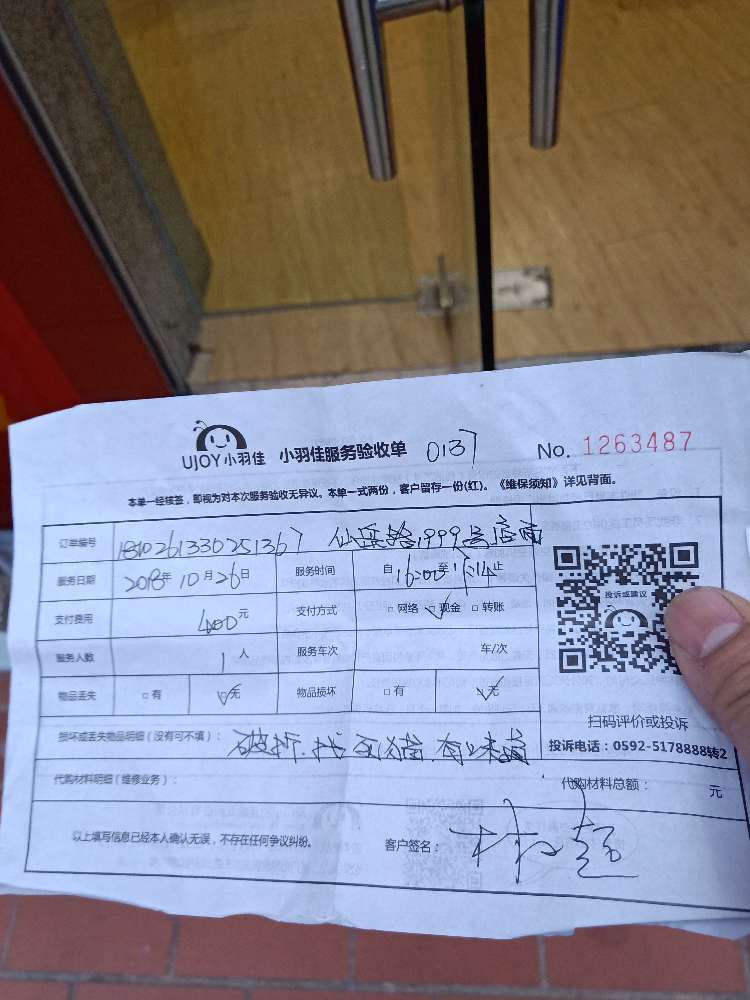 UJOY小羽佳 小羽佳服务验收单 0137 No. 1263487
本单一经核签，即视为对本次服务验收无异议。本单一式两份，客户留存一份(红)。《维保须知》详见背面。
订单编号 1999号店面
服务日期 2018年10月26日 服务时间 自16:00至 止
支付费用 400元 支付方式 □网络 □现金 □转账
服务人数 1人 服务车次 车/次
物品丢失 □有 □无 物品损坏 □有 □无
投诉或建议
扫码评价或投诉
投诉电话：0592-5178888转2
损坏或丢失物品明细（没有可不填）： 破拆.找死猫.有味道
代购材料明细（维修业务）： 代购材料总额： 元
以上填写信息已经本人确认无误，不存在任何争议纠纷。 客户签名：